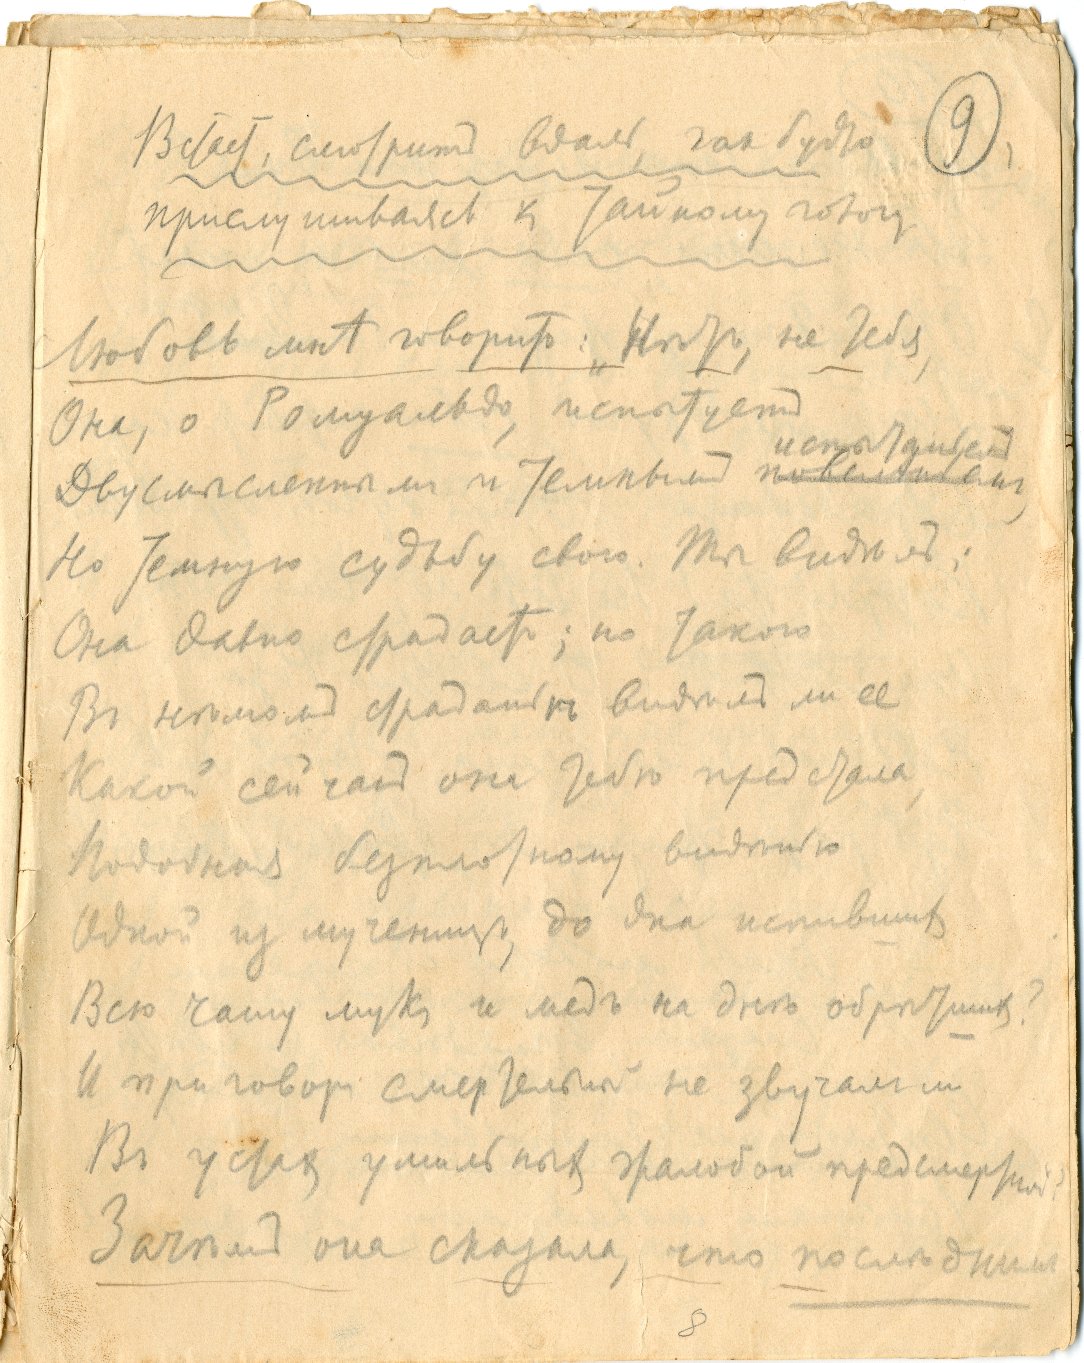 9
Встает, смотритъ вдаль, как будто
прислушиваясь къ тайному голосу
Любовь мнѣ говоритъ: „Нѣтъ, не тебя,
Она, о Ромуальдо, испытуетъ
испытаніемъ
Двусмысленнымъ и темнымъ
Но темную судьбу свою. Ты видѣлъ:
Она давно страдаетъ; но такою
Въ нѣмомъ страданіи видѣлъ ли ее
Какой сейчасъ она тебѣ предстала,
Подобная безплотному видѣнію
Одной из мученицъ, до дна испившихъ
Всю чашу мукъ и медъ на днѣ обрѣтшихъ?
И приговоръ смертельный не звучалъ ли
Въ устахъ умильныхъ жалобой предсмертной?
Зачѣмъ она сказала, что послѣднимъ
8